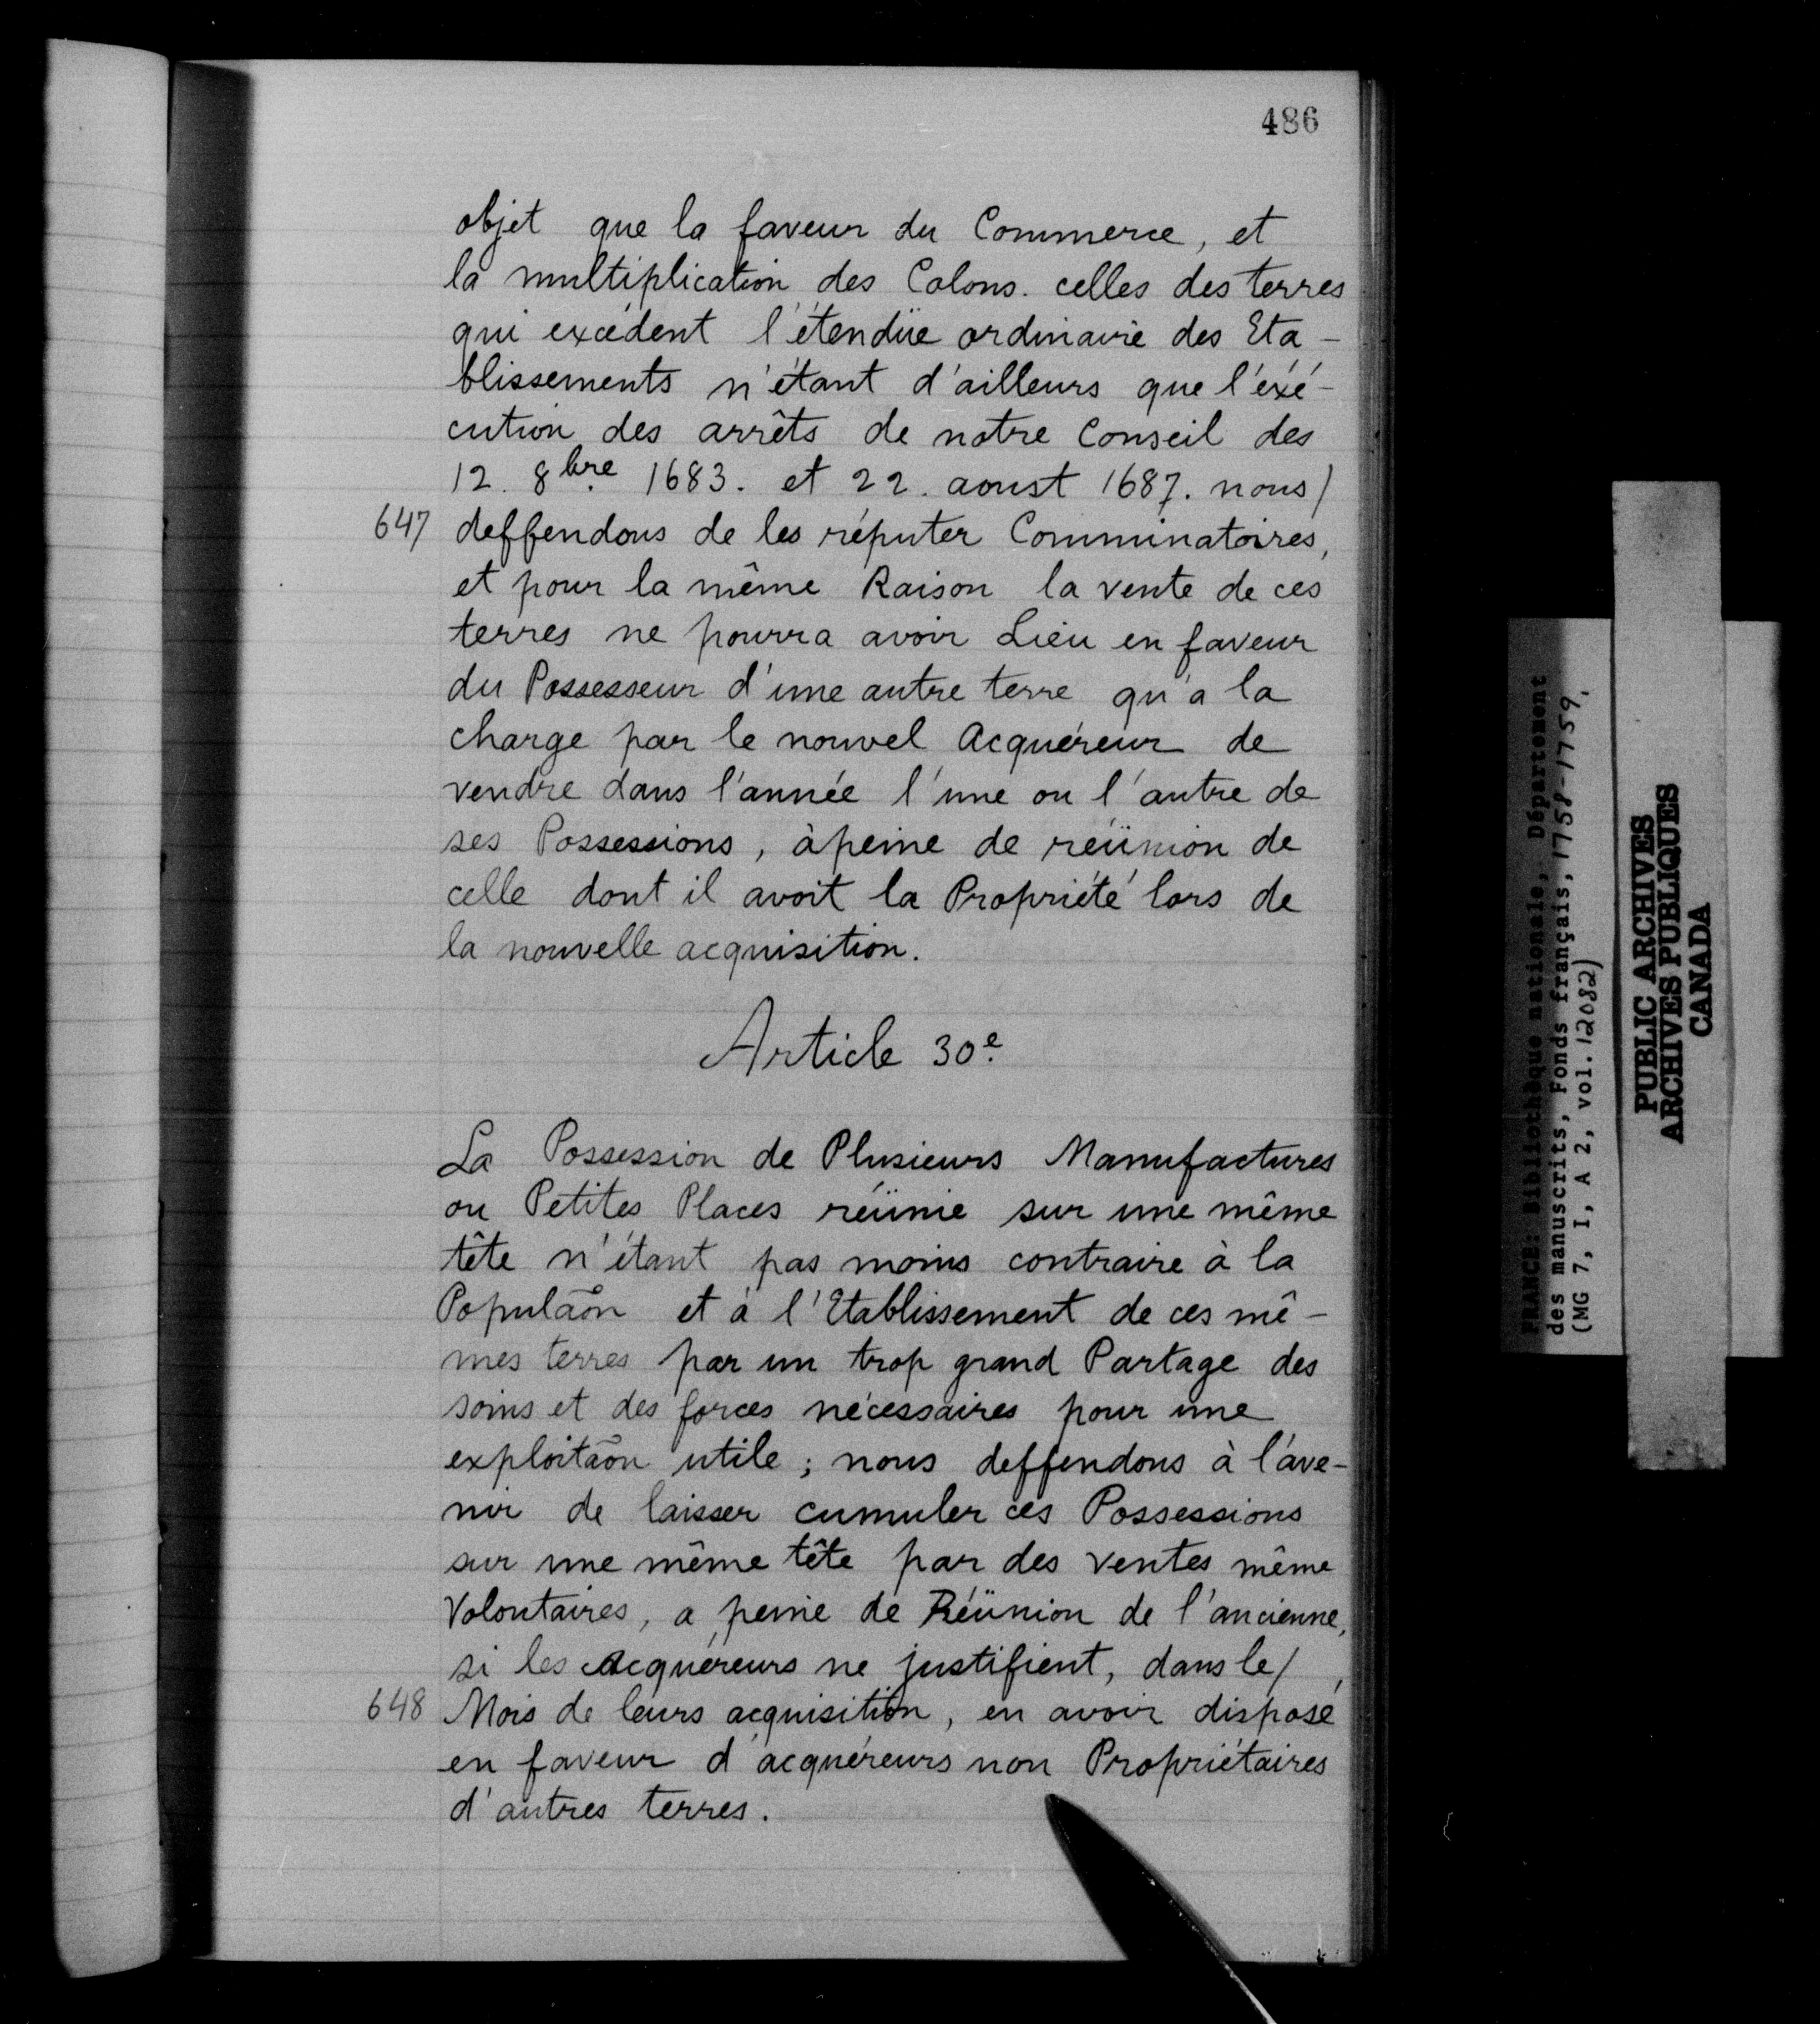 486
objet que la faveur du Commerce, et
la multiplication des Colons. celles des terres
qui excédent l'étendüe ordinaire des Eta-
blissements n'étant d'ailleurs que l'éxé-
cution des arrêts de notre Conseil des
12. 8bre 1683. et 22. aoust 1687. nous/
647 deffendons de les réputer Comminatoires,
et pour la même Raison la vente de ces
terres ne pourra avoir Lieu en faveur
du Possesseur d'une autre terre qu'a la
charge par le nouvel Acquéreur de
vendre dans l'année l'une ou l'autre de
ses Possessions, à peine de reünion de
celle dont il avoit la Propriété lors de
la nouvelle acquisition.
Article 30e.
La Possession de Plusieurs Manufactures
ou Petites Places réünie sur une même
tête n'étant pas moins contraire à la
Populaõn et à l'Etablissement de ces mê-
mes terres par un trop grand Partage des
soins et des forces nécessaires pour une
exploitaõn utile; nous deffendons à l'ave-
nir de laisser cumuler ces Possessions
sur une même tête par des ventes même
Volontaires, a peine de Réünion de l'ancienne,
si les Acquéreurs ne justifient, dans le/
648 Mois de leurs acquisition, en avoir disposé
en faveur d'acquéreurs non Propriétaires
d'autres terres.
FRANCE: Bibliothèque nationale, Département
des manuscrits, Fonds français, 1758-1759,
(MG 7, I, A 2, vol. 12082)
PUBLIC ARCHIVES
ARCHIVES PUBLIQUES
CANADA